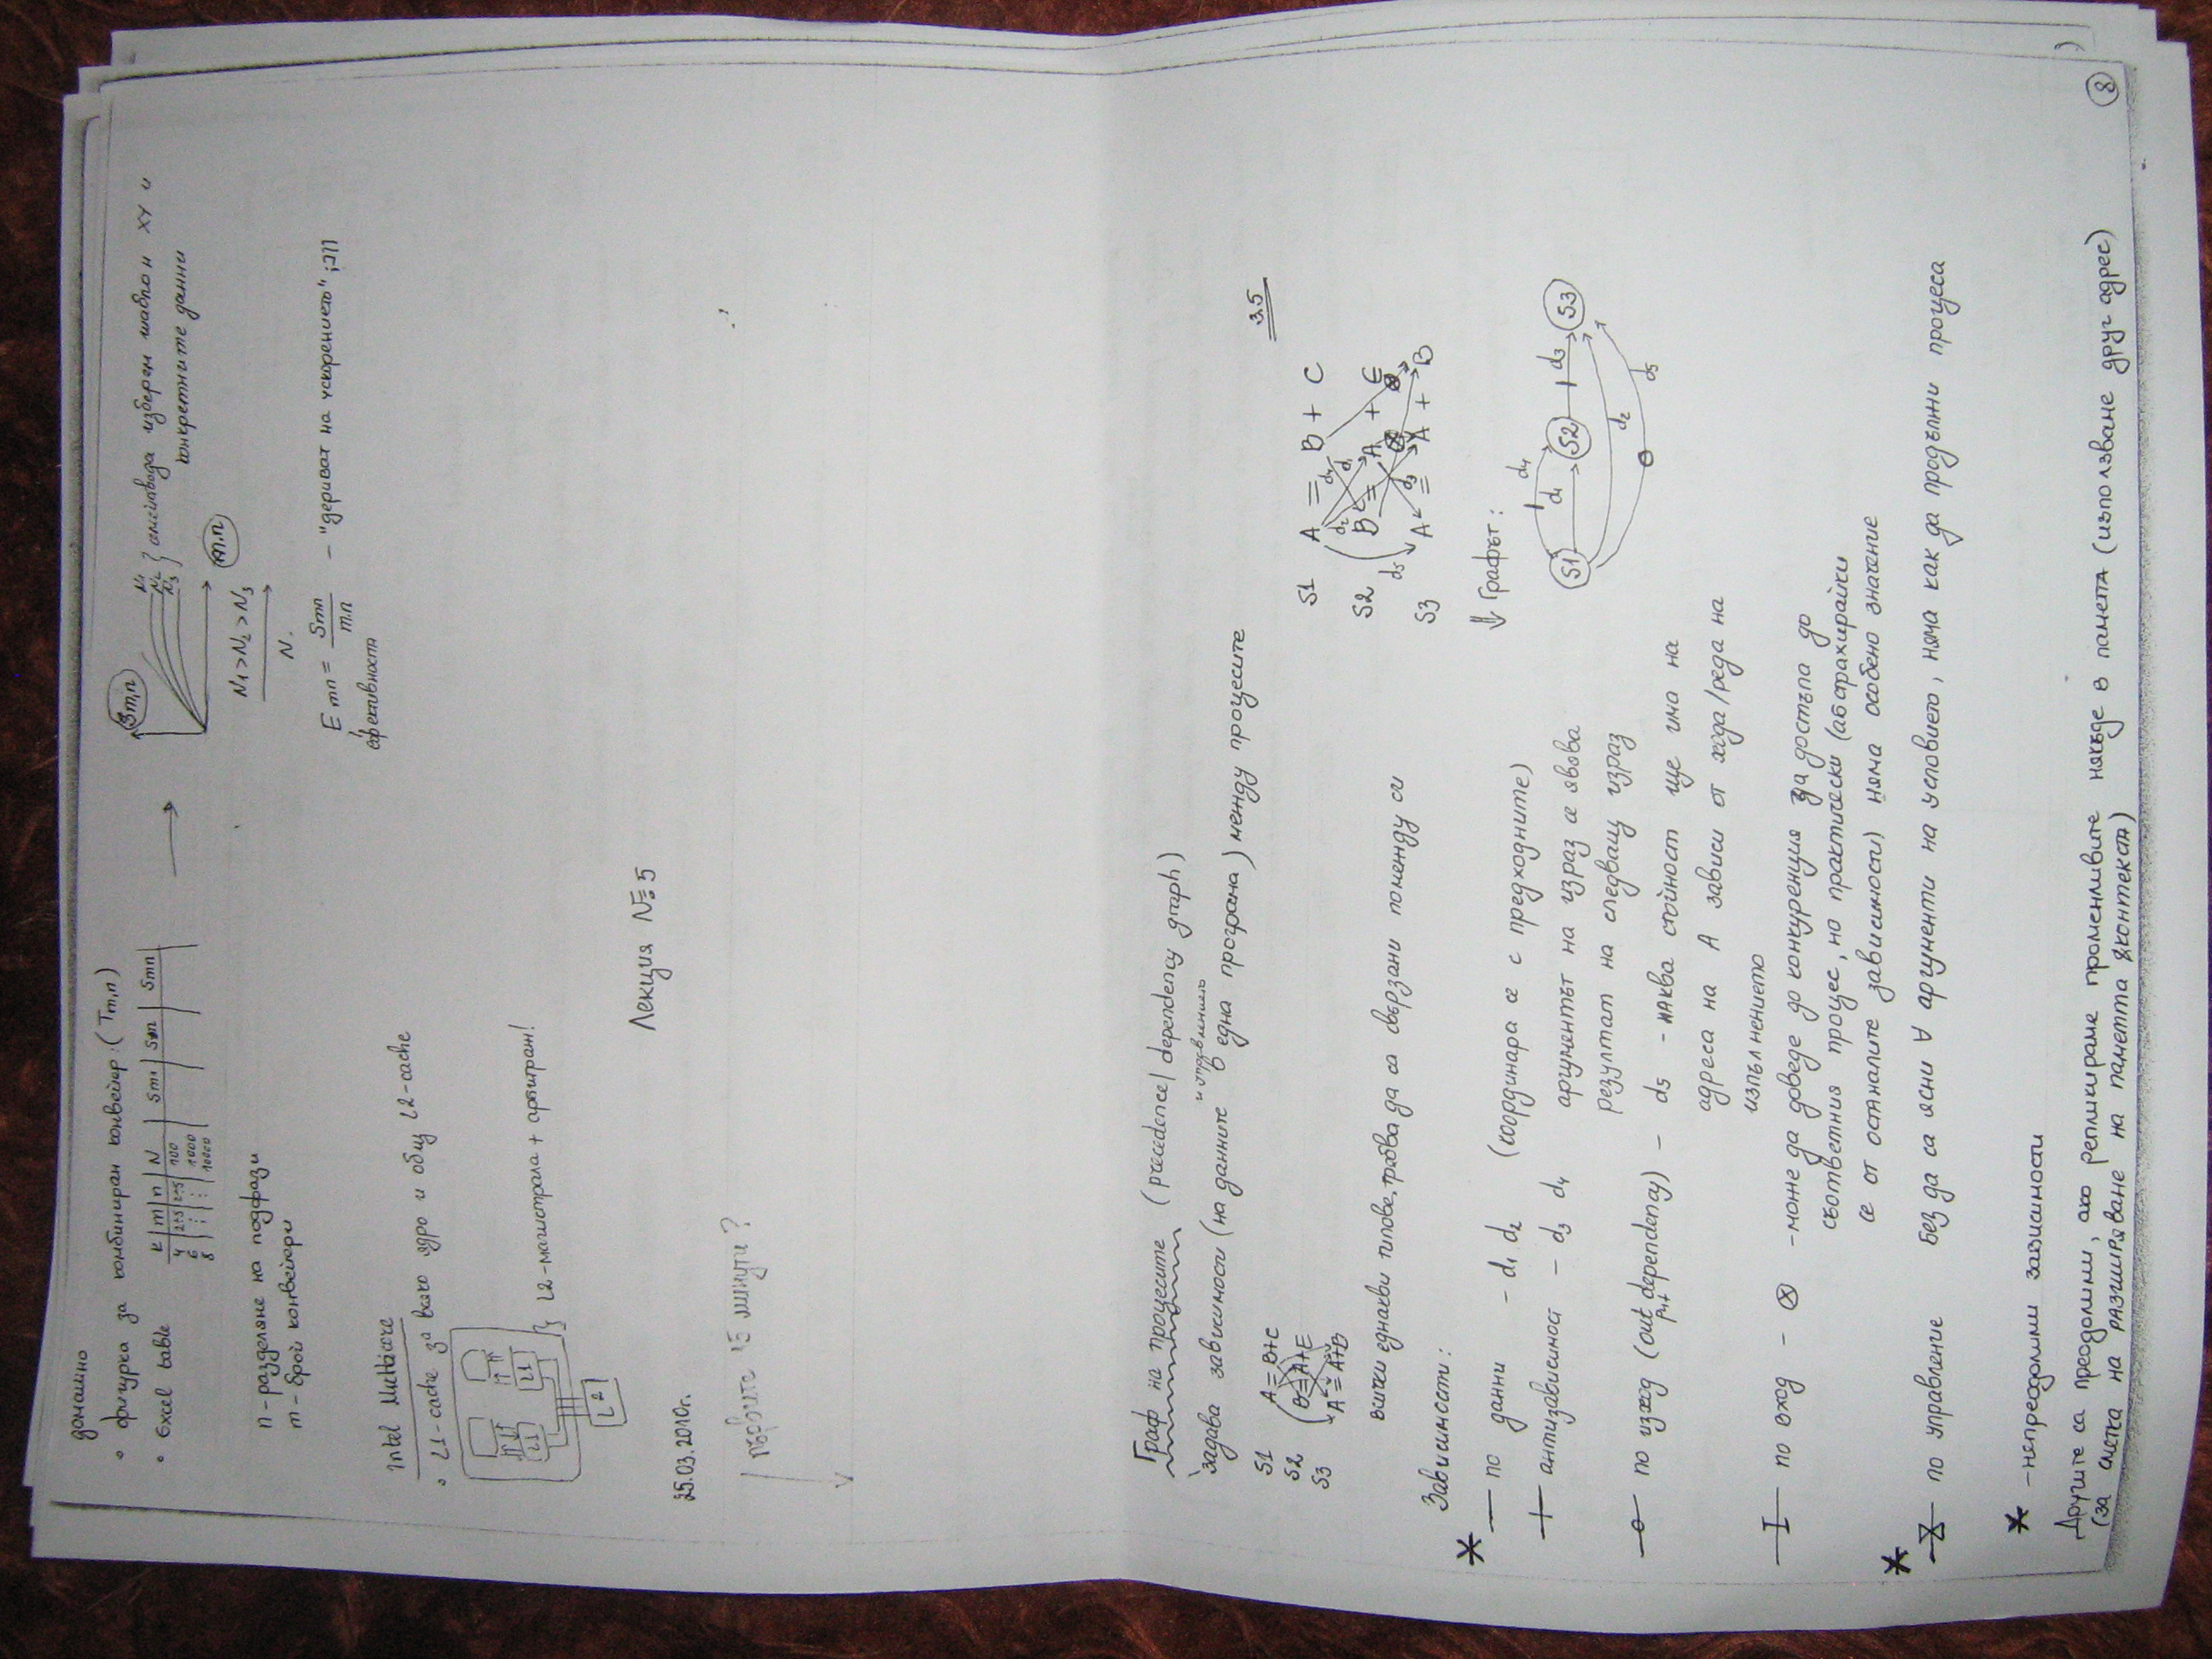 домашно
• фигурка за комбиниран конвейер: (Tm,n)
• Excel table
k | m | n | N | Sm1 | S1n | Smn
4 2÷5 2÷5 100
6 ⋮ ⋮ 1000
8 ⋮ ⋮ 10000
Sm,n
N1
N2
N3
m.n
N1 > N2 > N3
N
избереи шаблон XY и
конкретните данни
n - разделяне на подфази
m - брой конвейери
Emn = Smn / m.n - "дериват на ускорението"
ефективност
Intel Multicore
• L1-cache за всяко ядро и общ L2-cache
L1
L1
L2
L2-магистрала + арбитраж!
25.03.2010г.
Лекция № 5
първите 15 минути?
Граф на процесите (precedence/dependency graph)
задава зависимости (на данните и управлението в една програма) между процесите
S1 A=B+C
S2 B=A+E
S3 A=A+B
3.5
S1 A = B + C
S2 B = A + E
S3 A = A + B
d1
d2
d3
d4
d5
всички еднакви типове, трябва да са свързани помежду си
⇓ Графът:
S1 S2 S3
d1
d2
d3
d4
d5
Зависимости:
* — по данни - d1 d2 (координара се с предходните)
антизависимост - d3 d4 аргументът на израз се явява
резултат на следващ израз
по изход (output dependency) - d5 - каква стойност ще има на
адреса на A зависи от хода/реда на
изпълнението
по вход - ⊗ - може да доведе до конкуренция за достъпа до
съответния процес, но практически (абстрахирайки
се от останалите зависимости) няма особено значение
* по управление Без да са ясни ∀ аргументи на условието, няма как да продължи процеса
* - непреодолими зависимости
Другите са преодолими, ако реплицираме променливите някъде в паметта (използване друг адрес)
(за сметка на разширяване на паметта & контекста)
8